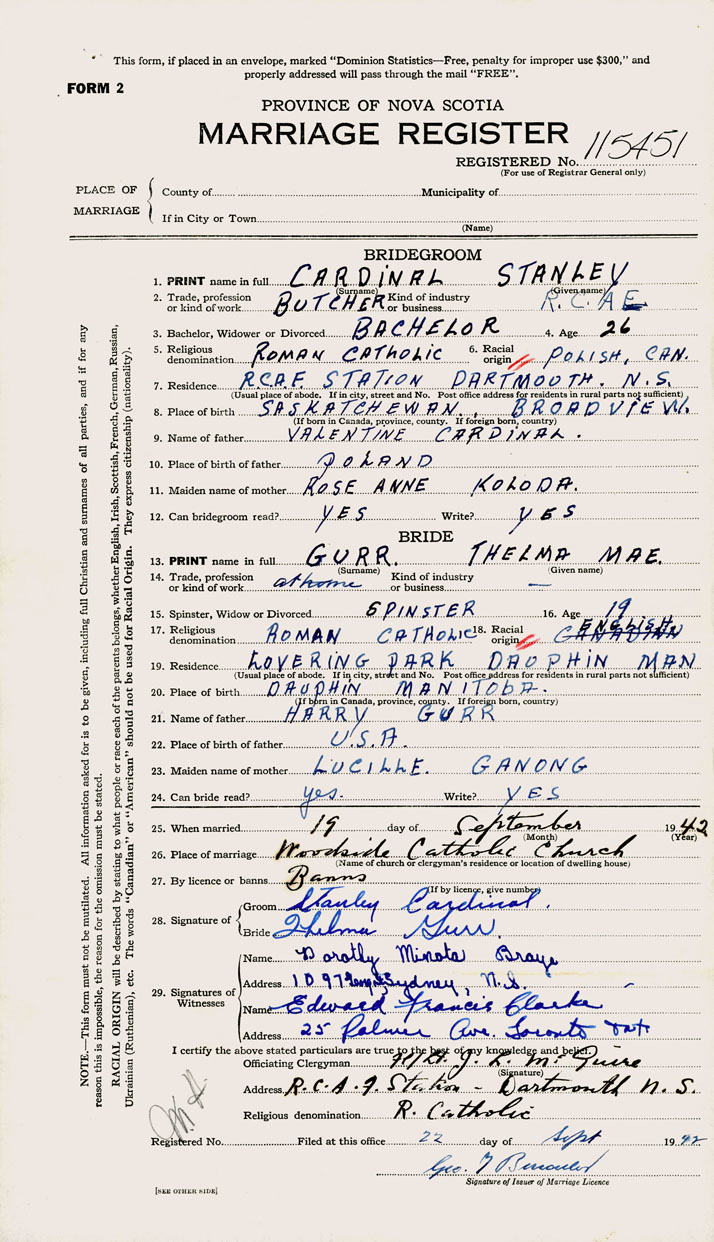 This form, if placed in an envelope, marked "Dominion Statistics—Free, penalty for improper use $300," and
properly addressed will pass through the mail "FREE".
FORM 2
PROVINCE OF NOVA SCOTIA
MARRIAGE REGISTER
REGISTERED No. 115451
(For use of Registrar General only)
PLACE OF MARRIAGE
County of Municipality of
If in City or Town
(Name)
BRIDEGROOM
1. PRINT name in full CARDINAL STANLEY
(Surname) (Given name)
2. Trade, profession or kind of work BUTCHER Kind of industry or business R.C.A.F.
3. Bachelor, Widower or Divorced BACHELOR 4. Age 26
5. Religious denomination ROMAN CATHOLIC 6. Racial origin POLISH, CAN.
7. Residence R.C.A.F. STATION DARTMOUTH. N.S.
(Usual place of abode. If in city, street and No. Post office address for residents in rural parts not sufficient)
8. Place of birth SASKATCHEWAN, BROADVIEW.
(If born in Canada, province, county. If foreign born, country)
9. Name of father VALENTINE CARDINAL.
10. Place of birth of father POLAND
11. Maiden name of mother ROSE ANNE KOLODA.
12. Can bridegroom read? YES Write? YES
BRIDE
13. PRINT name in full GURR. THELMA MAE.
(Surname) (Given name)
14. Trade, profession or kind of work at home Kind of industry or business —
15. Spinster, Widow or Divorced SPINSTER 16. Age 19
17. Religious denomination ROMAN CATHOLIC 18. Racial origin ENGLISH CANADIAN
19. Residence LOVERING PARK DAUPHIN MAN
(Usual place of abode. If in city, street and No. Post office address for residents in rural parts not sufficient)
20. Place of birth DAUPHIN MANITOBA.
(If born in Canada, province, county. If foreign born, country)
21. Name of father HARRY GURR
22. Place of birth of father U.S.A.
23. Maiden name of mother LUCILLE. GANONG
24. Can bride read? yes. Write? YES
25. When married 19 day of September 1942
(Month) (Year)
26. Place of marriage Woodside Catholic Church
(Name of church or clergyman's residence or location of dwelling house)
27. By licence or banns Banns
(If by licence, give number)
28. Signature of
Groom Stanley Cardinal.
Bride Thelma Gurr.
29. Signatures of Witnesses
Name Dorothy Minota Braye
Address 1097 Sydney, N.S.
Name Edward Francis Clarke
Address 25 Palmer Ave. Toronto Ont
I certify the above stated particulars are true to the best of my knowledge and belief.
Officiating Clergyman F/Lt. J. L. McGuire
(Signature)
Address R.C.A.F. Station - Dartmouth N.S.
Religious denomination R. Catholic
Registered No. Filed at this office 22 day of Sept 1942
Signature of Issuer of Marriage Licence
[SEE OTHER SIDE]
NOTE.—This form must not be mutilated. All information asked for is to be given, including full Christian and surnames of all parties, and if for any
reason this is impossible, the reason for the omission must be stated.
RACIAL ORIGIN will be described by stating to what people or race each of the parents belongs, whether English, Irish, Scottish, French, German, Russian,
Ukrainian (Ruthenian), etc. The words "Canadian" or "American" should not be used for Racial Origin. They express citizenship (nationality).